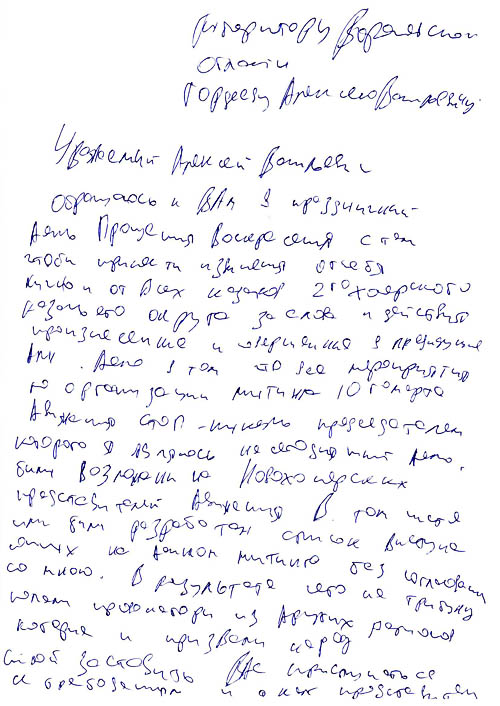 Губернатору Воронежской
области
Гордееву Алексею Васильевичу
Уважаемый Алексей Васильевич
обращаюсь к ВАм в праздничный
день Прощения Воскресения с тем
чтобы принести извинения от себя
лично и от Всех казаков 2го Хоперского
казачьего округа за слова и действия
произнесенные и совершенные в предидущие
дни. Дело в том что все мероприятия
по организации митинга 10го марта
Движения СТОП-никель председателем
которого я являюсь на сегодняшний день,
были Возложены на Новохоперских
представителей Движения В том числе
ими был разработан список выступа
ющих на данном митинге без согласования
со мною. В результате чего на трибуну
попали провокаторы из других регионов
которые и призвали народ
силой заставить ВАс прислушаться
к требованиям